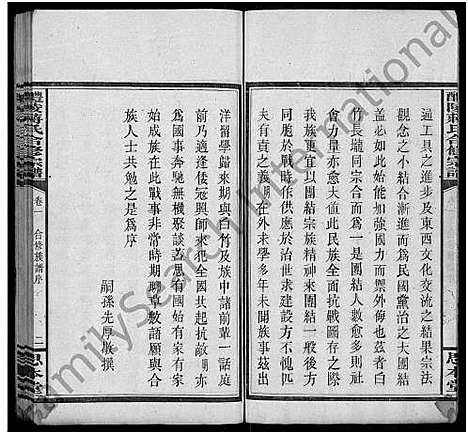 醴陵蔣氏合修宗譜
通工具之進步及東西文化交流之結果宗法
觀念之小結合漸進而爲民國黨治之大團結
蓋必如此庶幾民族可以生存禦外侮也茲者白
竹長壠同宗合而爲一是團結人數愈多則抗
戰力量亦愈大值此民族全面抗戰圖存之際
我族更宜以團結宗族精神來團結一般民衆
方於戰時能供應於治世求建設方不愧匹
夫有責之義也余在外求學多年未聞族事茲出
思本堂
洋留學歸來期與白竹及族中諸前輩一話庭
前乃適逢倭寇興師來犯全國共起抗敵則亦
爲國事奔馳無機聚談蓋思有國始有家有家
始成族在此戰事非常時期聊草數語願與合
族人士共勉之是爲序
嗣孫先厚敬撰
醴陵蔣氏合修宗譜
卷一 合修族譜序
二
FamilySearch International